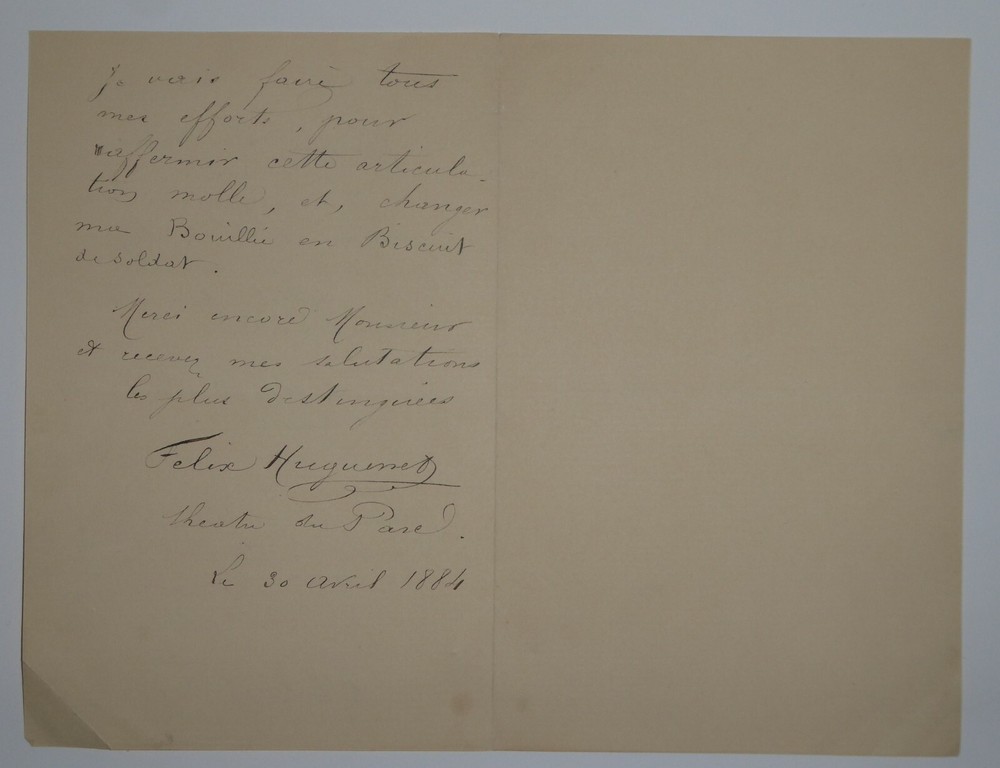 Je vais faire tous
mes efforts, pour
raffermir cette articula-
tion molle, et, changer
ma Bouillie en Biscuit
de soldat.
Merci encore Monsieur
et recevez mes salutations
les plus distinguées
Felix Huguenet
theatre du Parc.
Le 30 avril 1884